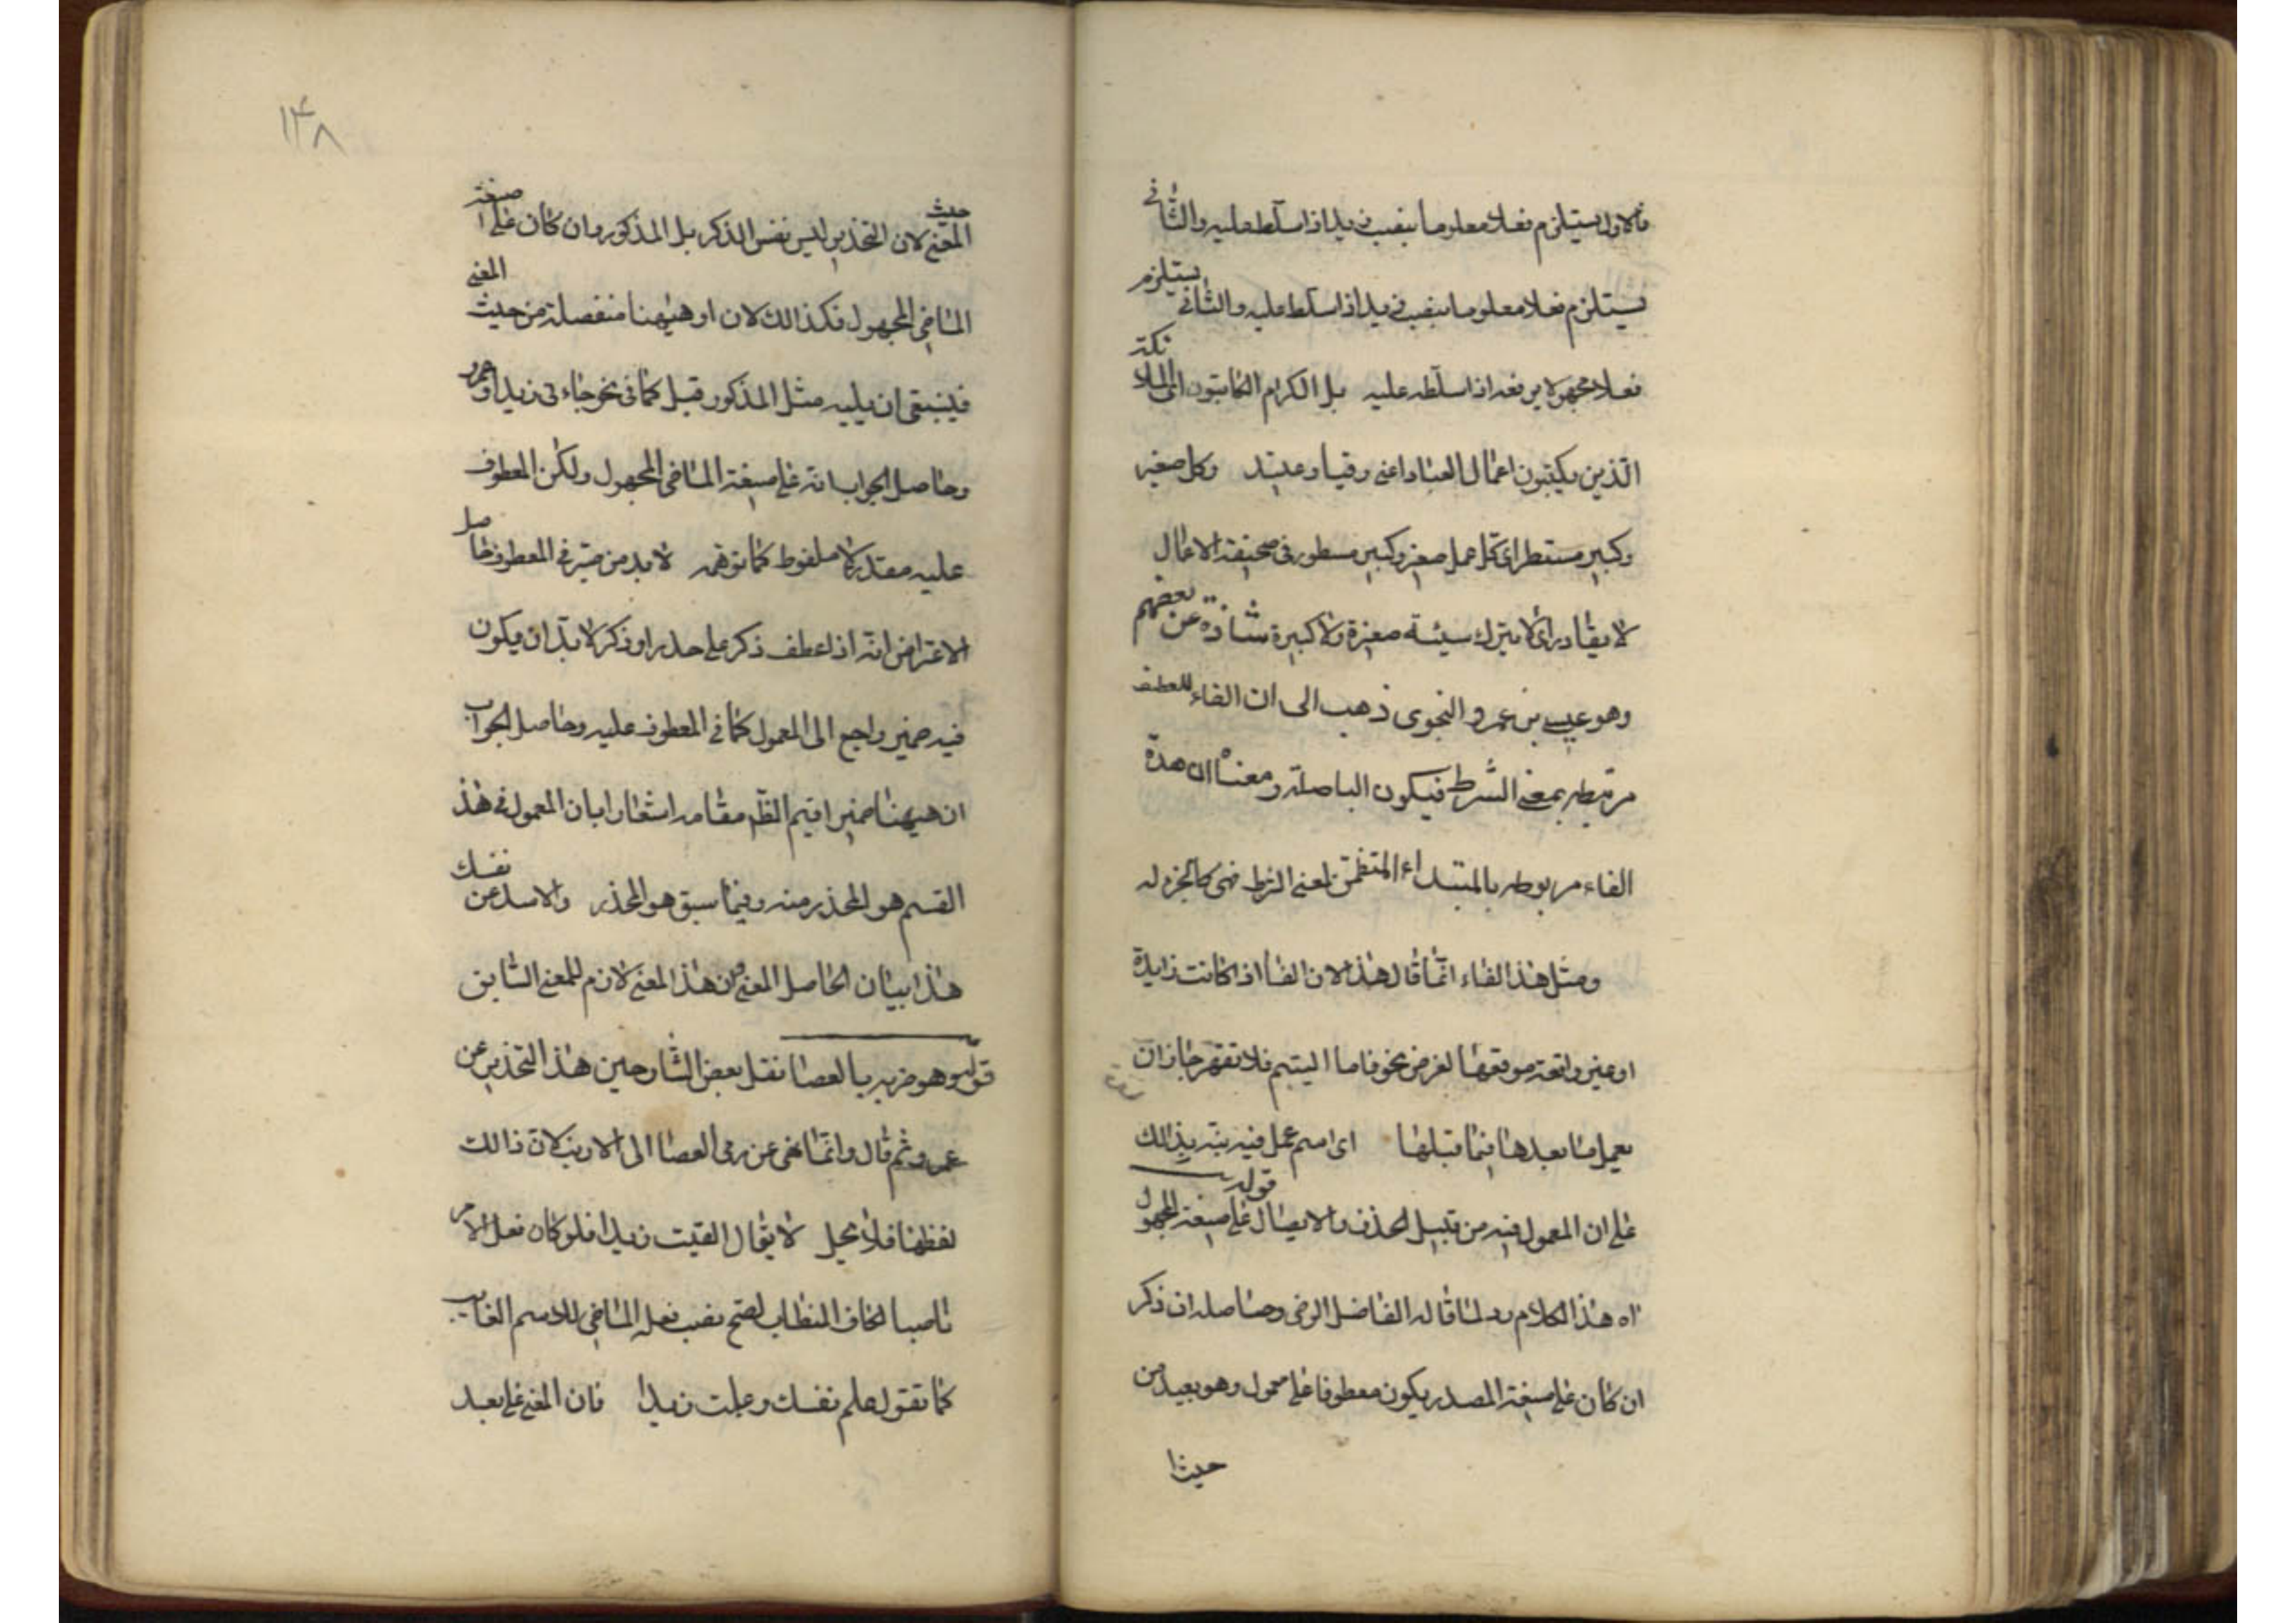 فالاول يستلزم فعلا معلوما ينصب زيدا اذا سلط عليه والثانى
يستلزم فعلا معلوما ينصب زيدا اذا سلط عليه والثانى يستلزم
فعلا مجهولا يرفعه اذا سلطه عليه بل الكرام الكاتبون اى الملائكة
الذين يكتبون اعمال العباد اعنى رقيبا وعتيد وكل صغير
وكبير مستطر اى كل عمل صغير وكبير مسطور فى صحيفة الاعمال
لا يغادر اى لا يترك سيئة صغيرة ولا كبيرة شاذة عن بعضهم
وهو عيسى بن عمرو النحوى ذهب الى ان الفاء للعطف
مرتبطه بمعنى الشرط فيكون الباصلة ومعناه ان هذه
الفاء مربوطه بالمبتداء المتضمن لمعنى الشرط فهى كالجزء له
ومثل هذا الفاء انما قال هذا لان الفاا اذا كانت زايدة
او غير واقعة موقعها لغرض نحو فاما اليتيم فلا تقهر جاز ان
يعمل ما بعدها فيما قبلها اى اسم عمل فيه نبه بذالك
على ان المعمول فيه من قبيل الحذف والايصال قوله على صيغة المجهول
اه هذا الكلام رد لما قاله الفاضل الرضى وحاصله ان ذكر
ان كان على صيغة المصدر يكون معطوفا على معمول وهو بعيد من
حيث ا
١٤٨
حيث المعنى لان التحذير ليس نفس الذكر بل المذكور وان كان على صيغة
الماضى المجهول فكذالك لان او هيهنا منفصلة من حيث المعنى
فينبغى ان يليه مثل المذكور قبل كما فى نحو جاءنى زيد او عمرو
وحاصل الجواب انه على صيغة الماضى المجهول ولكن المعطوف
عليه مقدر لا ملفوظ كما توهم لابد من ضمير فى المعطوف حاصل
الاعتراض انه اذا عطف ذكر على حذر او ذكر لا بد ان يكون
فيه ضمير راجع الى المعمول كما فى المعطوف عليه وحاصل الجواب
ان هيهنا ضمير اقيم الظاهر مقامه اشعارا بان المعمول فى هذ
القسم هو المحذر منه وفيما سبق هو المحذر والاسد عن نفسك
هذا بيان الحاصل المعنى وان هذا المعنى لازم للمعنى السابق
قوله وهو ضربه بالعصا نقل بعض الشارحين هذا التحذير عن
عمر وثم قال وانما نهى عن رمى العصا الى الارنب لان ذالك
لا يقال القيت زيدا فلو كان فعل الامر
ناصبا لكاف الخطاب لصح نصب فعله الماضى للاسم الغايب
كما تقول علم نفسك وعلمت زيدا فان المعنى على بعد